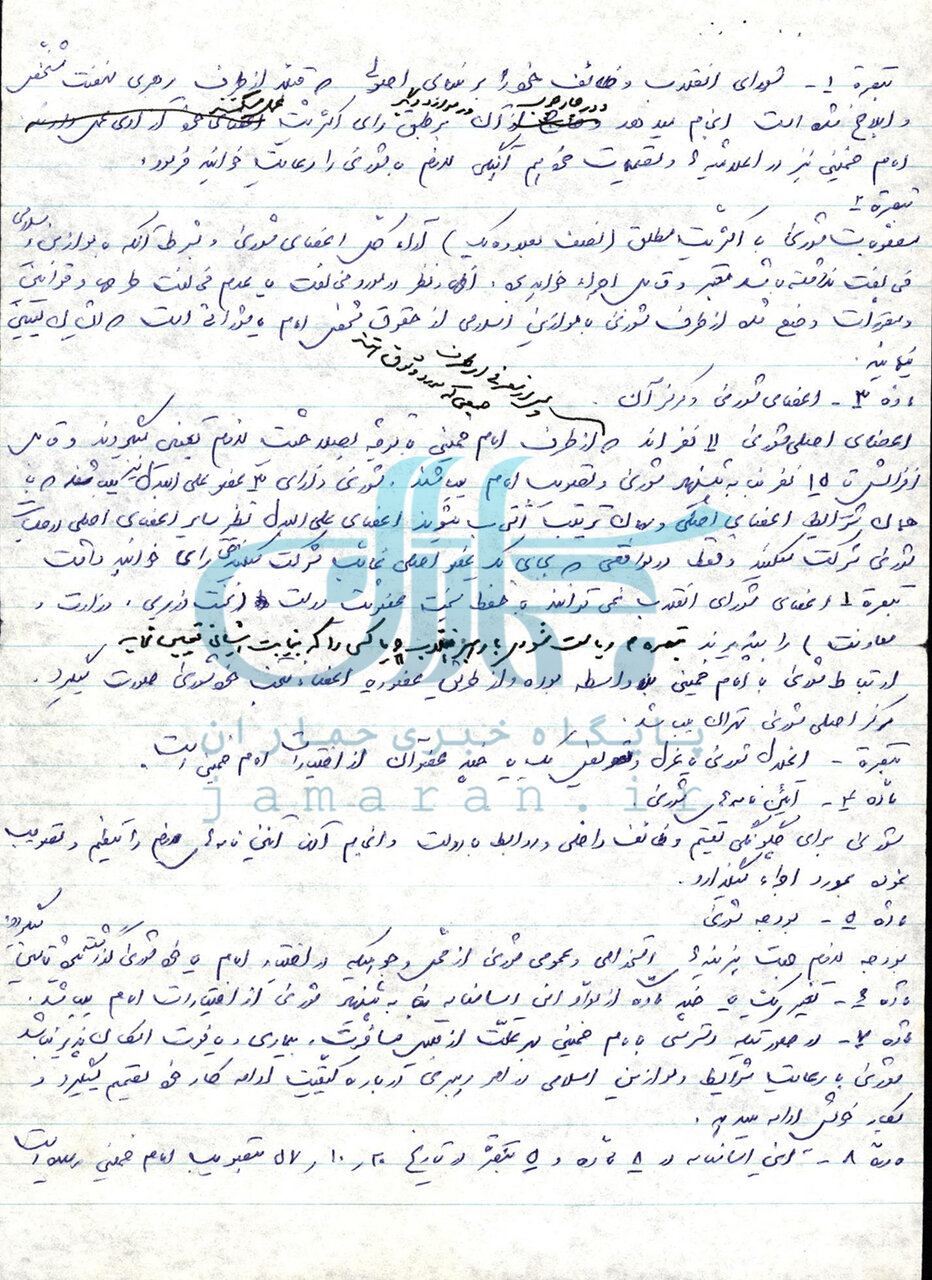 تبصره ۱- شورای انقلاب وظائف خود را بر مبنای اصولی که قبلا از طرف رهبری نهضت مشخص
و در چارچوب و در موارد دیگر عمل میکند
و ابلاغ شده است انجام میدهد و آن بر طبق رای اکثریت اعضای خود
امام خمینی نیز در اعلامیه‌ها و تصمیمات خود آنگهی لازم با شوری را رعایت خواهند فرمود.
تبصره ۲
مصوبات شوری با اکثریت مطلق (نصف بعلاوه یک) آراء کل اعضای شوری و بشرط آنکه با موازین اسلامی
مخالفت نداشته باشد معتبر و قابل اجراء خواهد بود. اظهارنظر در مورد مخالفت یا عدم مخالفت طرحها و قوانین
و مقررات وضع شده از طرف شوری با موازین اسلامی از حقوق شخص امام یا شورائی است که ایشان تعیین
نمایند.
و پس از معرفی از طرف
جمعی که مورد وثوق است
ماده ۳- اعضای شوری و مرکز آن.
اعضای اصلی شوری ۱۱ نفراند که از طرف امام خمینی با توجه بصلاحیت لازم تعیین میگردند و قابل
افزایش تا ۱۵ نفر بنا به پیشنهاد شوری و تصویب امام میباشند. شوری دارای ۳ عضو علی البدل نیز میباشد که با
همان شرایط اعضای اصلی و بهمان ترتیب انتخاب میشوند اعضای علی البدل نظیر سایر اعضای اصلی در جلسات
شوری شرکت میکنند و فقط در مواقعی که بجای یک عضو اصلی غائب شرکت میکنند حق رای خواهند داشت
تبصره ۱ اعضای شورای انقلاب نمی توانند با حفظ سمت عضویت دولت (نخست وزیری، وزارت و
معاونت) را بپذیرند تبصره ۲ ریاست شوری با رهبر انقلاب یا کسی را که بنیابت ایشان تعیین نمایند
ارتباط شوری با امام خمینی بلاواسطه بوده و از طریق عضو یا اعضاء منتخب خود شوری صورت میگیرد.
مرکز اصلی شوری تهران میباشد.
تبصره - انحلال شوری یا عزل و تعویض یک یا چند عضو آن از اختیارات امام خمینی است.
ماده ۴- آئین نامه‌های شوری.
شوری برای چگونگی تقسیم وظائف داخلی و روابط با دولت و انجام آن آئین نامه‌های لازم را تنظیم و تصویب
نموده بمورد اجراء میگذارد.
ماده ۵- بودجه شوری
بودجه لازم جهت هزینه‌های استخدامی و عمومی شوری از محل وجوهیکه در اختیار امام یا خود شوری گذاشته میشود تامین میگردد.
ماده ۶- تغییر یک یا چند ماده از مواد این اساسنامه بنا به پیشنهاد شوری از اختیارات امام میباشد.
ماده ۷- در صورتیکه دسترسی به امام خمینی بهر علت از قبیل مسافرت، بیماری و یا فوت امکان پذیر نباشد
شوری با رعایت شرایط و موازین اسلامی در امر رهبری درباره کیفیت ادامه کار خود تصمیم میگیرد و
بکار خویش ادامه میدهد.
ماده ۸- این اساسنامه در ۸ ماده و ۵ تبصره در تاریخ ۲۰ر۱۰ر۵۷ بتصویب امام خمینی رسیده است
پایگاه خبری جماران
jamaran.ir